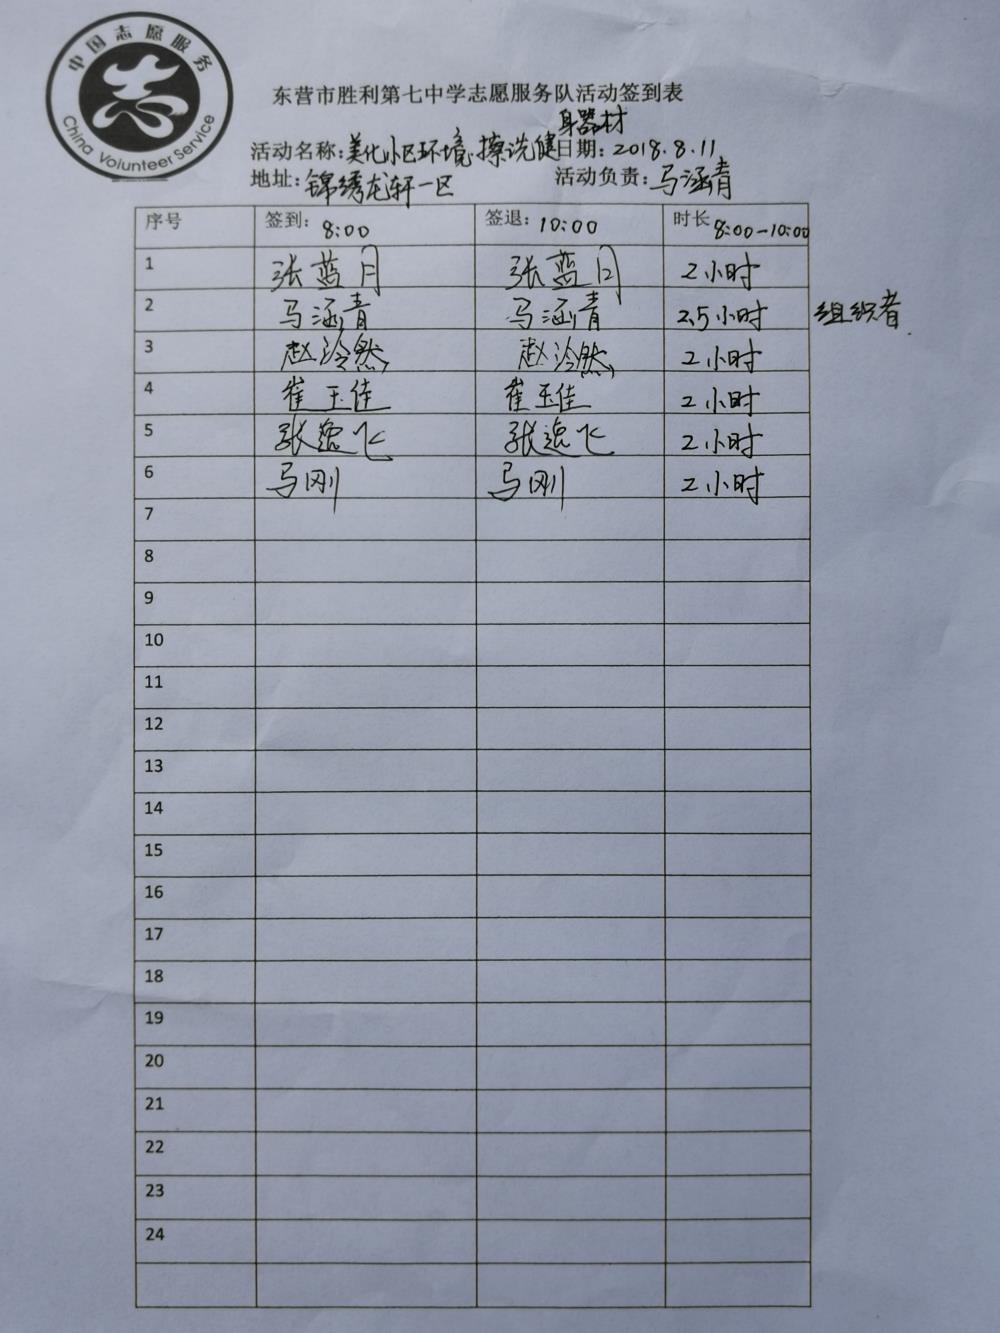 中国志愿服务
China Volunteer Service
东营市胜利第七中学志愿服务队活动签到表
活动名称:美化小区环境,擦洗健身器材 日期:2018.8.11
地址:锦绣龙轩一区 活动负责:马涵青
序号 签到:8:00 签退:10:00 时长 8:00-10:00
1 张蓝月 张蓝月 2小时
2 马涵青 马涵青 2.5小时 组织者.
3 赵泠然 赵泠然 2小时
4 崔玉佳 崔玉佳 2小时
5 张逸飞 张逸飞 2小时
6 马刚 马刚 2小时
7
8
9
10
11
12
13
14
15
16
17
18
19
20
21
22
23
24